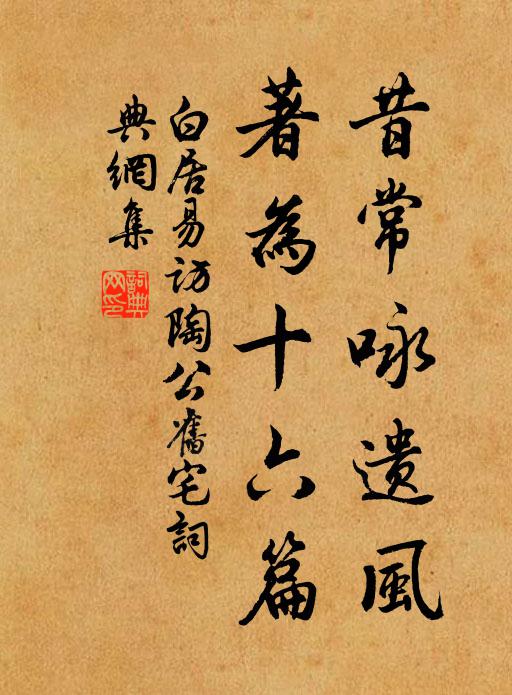 昔常咏遺風
著為十六篇
白居易訪陶公舊宅詞
典網集
詞典網印